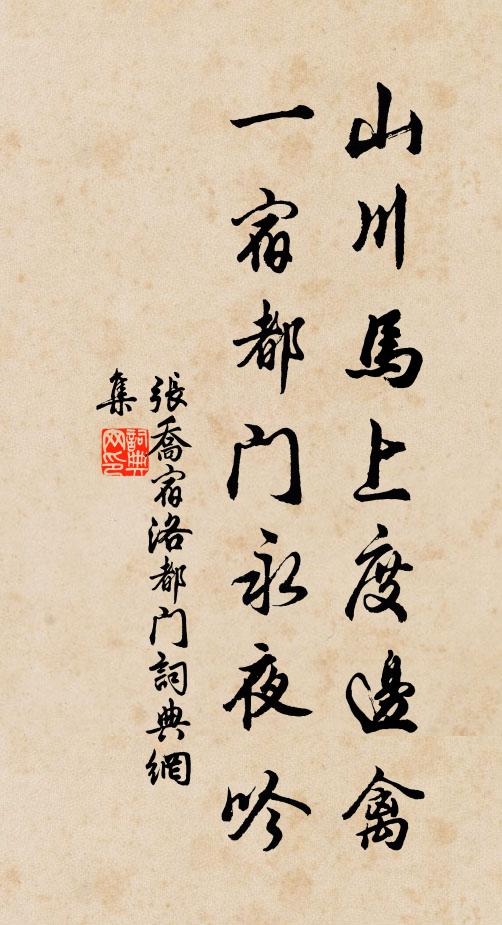 山川馬上度邊禽
一宿都门永夜吟
張喬宿洛都门詞典網
集
詞典网印